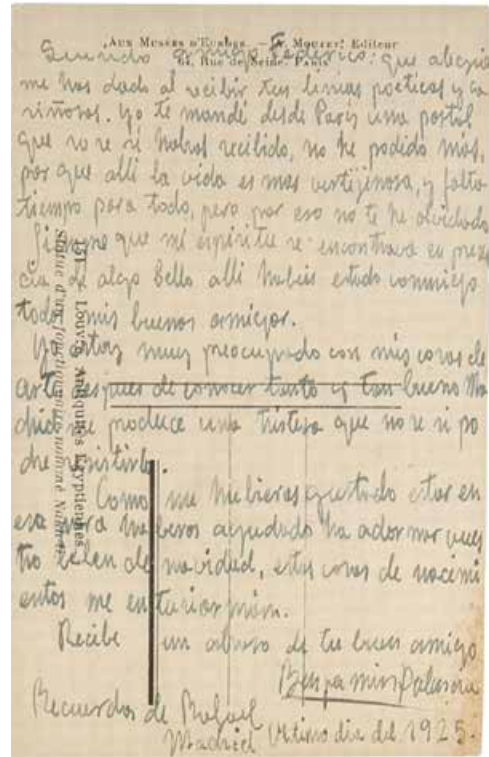 AUX MUSÉES D'EUROPE. — P. MOUTET, Editeur
61, Rue de Seine. Paris
Querido amigo Federico: que alegria
me has dado al recibir tus lineas poéticas y ca
riñosas. Yo te mandé desde París una postal
que no se si habras recibido, no he podido más,
por que alli la vida es mas vertijinosa, y falta
tiempo para todo, pero por eso no te he olvidado
Siempre que mi espiritu se encontrava en presen
cia de algo bello alli habeis estado conmigo
todos mis buenos amigos.
Yo estoy muy preocupado con mis cosas de
arte despues de conocer tanto y tan bueno Ma
drid me produce una tristesa que no se si po
dre resistirla.
Como me hubieras gustado estar en
esa para haberos ayudado ha adornar vues
tro belen de navidad, estas cosas de nacimi
entos me entusiasmám.
Recibe un abrazo de tu buen amigo
Benjamin Palencia
Recuerdos de Rafael
Madrid Ultimo dia del 1925.
Louvre Antiquités Egyptiennes
Statue d'un fonctionnaire nommé